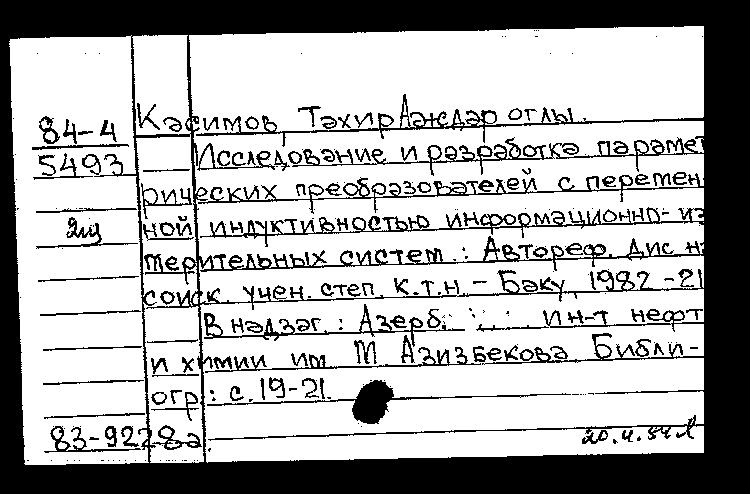 84-4
5493
Касимов, Тахир Аждар оглы.
Исследование и разработка парамет
рических преобразователей с перемен
2 из
ной индуктивностью информационно-из
мерительных систем.: Автореф. дис на
соиск. учен. степ. к.т.н. - Баку, 1982 - 21
В надзаг.: Азерб. ин-т нефт
и химии им М Азизбекова Библи-
огр: с. 19-21.
83-9228а
20.4.84